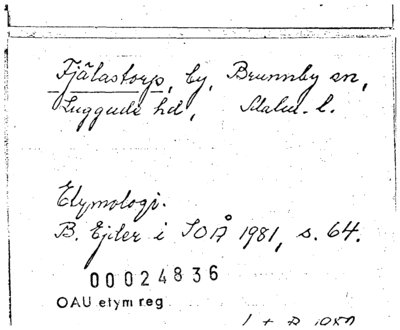 Fjälastorp, by, Brunnby sn,
Luggude hd, Malm. l.
Etymologi.
B. Ejder i SOÅ 1981, s. 64.
00024836
OAU etym reg